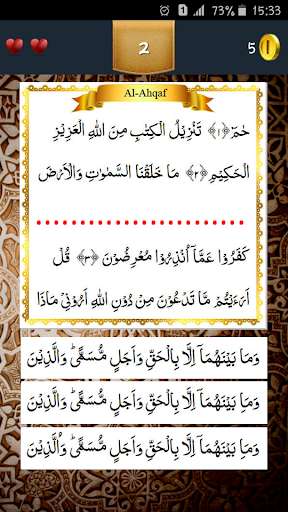 73% 15:33
2
5
Al-Ahqaf
حٰمۤ ﴿١﴾ تَنْزِيْلُ الْكِتٰبِ مِنَ اللّٰهِ الْعَزِيْزِ
الْحَكِيْمِ ﴿٢﴾ مَا خَلَقْنَا السَّمٰوٰتِ وَالْاَرْضَ
كَفَرُوْا عَمَّآ اُنْذِرُوْا مُعْرِضُوْنَ ﴿٣﴾ قُلْ
اَرَءَيْتُمْ مَّا تَدْعُوْنَ مِنْ دُوْنِ اللّٰهِ اَرُوْنِيْ مَاذَا
وَمَا بَيْنَهُمَآ اِلَّا بِالْحَقِّ وَاَجَلٍ مُّسَمًّىۗ وَالَّذِيْنَ
وَمَا بَيْنَهُمَآ اِلَّا بِالْحَقِّ وَاَجَلٍ مُّسَمًّىۗ وَالَّذِيْنَ
وَمِا بَيْنَهُمَآ اِلَّا بِالْحَقِّ وَاَجَلٍ مُّسَمًّىۗ وَاُلَّذِيْنَ